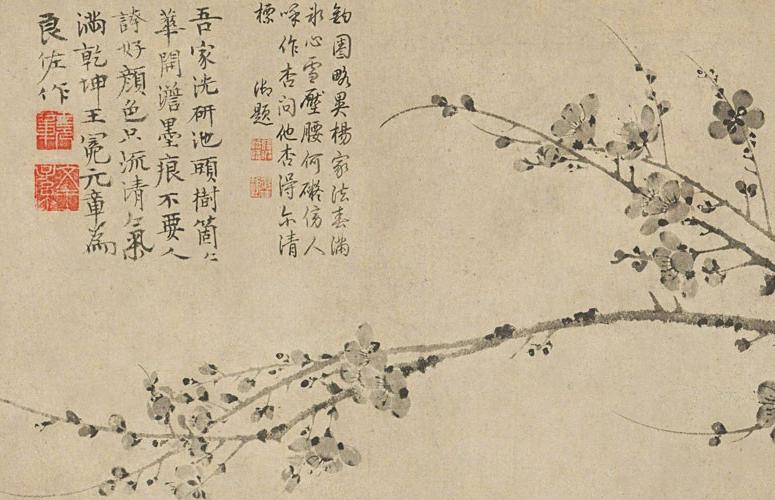 鉤圈略異楊家法春滿
氷心雪壓腰何礙傍人
呼作杏問他杏得尒清
標 御題
吾家洗研池頭樹箇〻
華開澹墨痕不要人
誇好顏色只流清氣
滿乾坤王冕元章為
良佐作